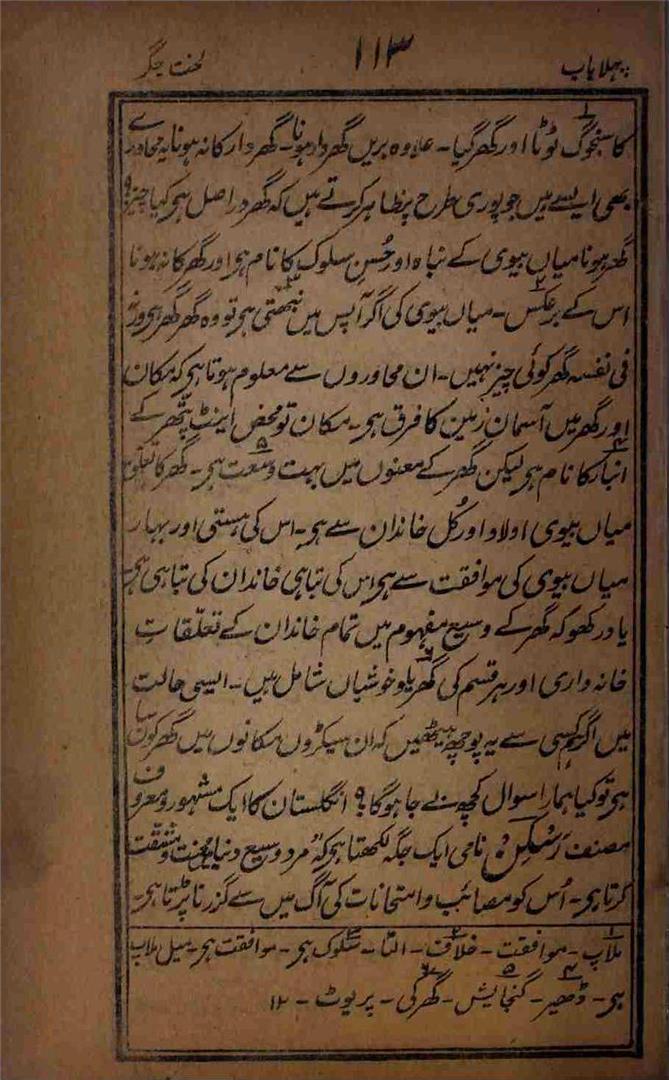 پہلا باب ۱۱۳ لخت جگر
کا سنجوگ ٹوٹا اور گھر گیا۔ علاوہ بریں گھر دار ہونا۔ گھر دار کا نہ ہونا یہ محاورے
بھی ایسے ہیں جو پوری طرح پر ظاہر کرتے ہیں کہ گھر در اصل ہی کیا چیز؟
گھر ہونا میاں بیوی کے نباہ اور حُسنِ سلوک کا نام ہی اور گھر کا نہ ہونا
اس کے برعکس۔ میاں بیوی کی اگر آپس میں نبھتی ہی تو وہ گھر گھر ہی ورنہ
فی نفسہ گھر کوئی چیز نہیں۔ ان محاوروں سے معلوم ہوتا ہی کہ مکان
اور گھر میں آسمان زمین کا فرق ہی۔ مکان تو محض اینٹ پتھر کے
انبار کا نام ہی لیکن گھر کے معنوں میں بہت وسعت ہی۔ گھر کا تعلق
میاں بیوی اولاد اور کُل خاندان سے ہی۔ اس کی ہستی اور بہار
میاں بیوی کی موافقت سے ہی اس کی تباہی خاندان کی تباہی ہی
یاد رکھو کہ گھر کے وسیع مفہوم میں تمام خاندان کے تعلّقاتِ
خانہ داری اور ہر قسم کی گھریلو خوشیاں شامل ہیں۔ ایسی حالت
میں اگر ہم کسی سے یہ پوچھ بیٹھیں کہ ان سیکڑوں مکانوں میں گھر کون سا
ہی تو کیا ہمارا سوال کچھ بے جا ہوگا؟ انگلستان کا ایک مشہور و معروف
مصنف رَسْکِن نامی ایک جگہ لکھتا ہی کہ "مرد وسیع دنیا میں محنت و مشقت
کرتا ہی۔ اُس کو مصائب و امتحانات کی آگ میں سے گزرنا پڑتا ہی۔
۱ ملاپ۔ موافقت۔ ۲ خلاف۔ الٹا۔ ۳ سلوک ہی۔ موافقت ہی۔ میل ملاپ
ہی۔ ۴ ڈھیر۔ ۵ گنجایش۔ ۶ گھر کی۔ پریوٹ۔ ۱۲